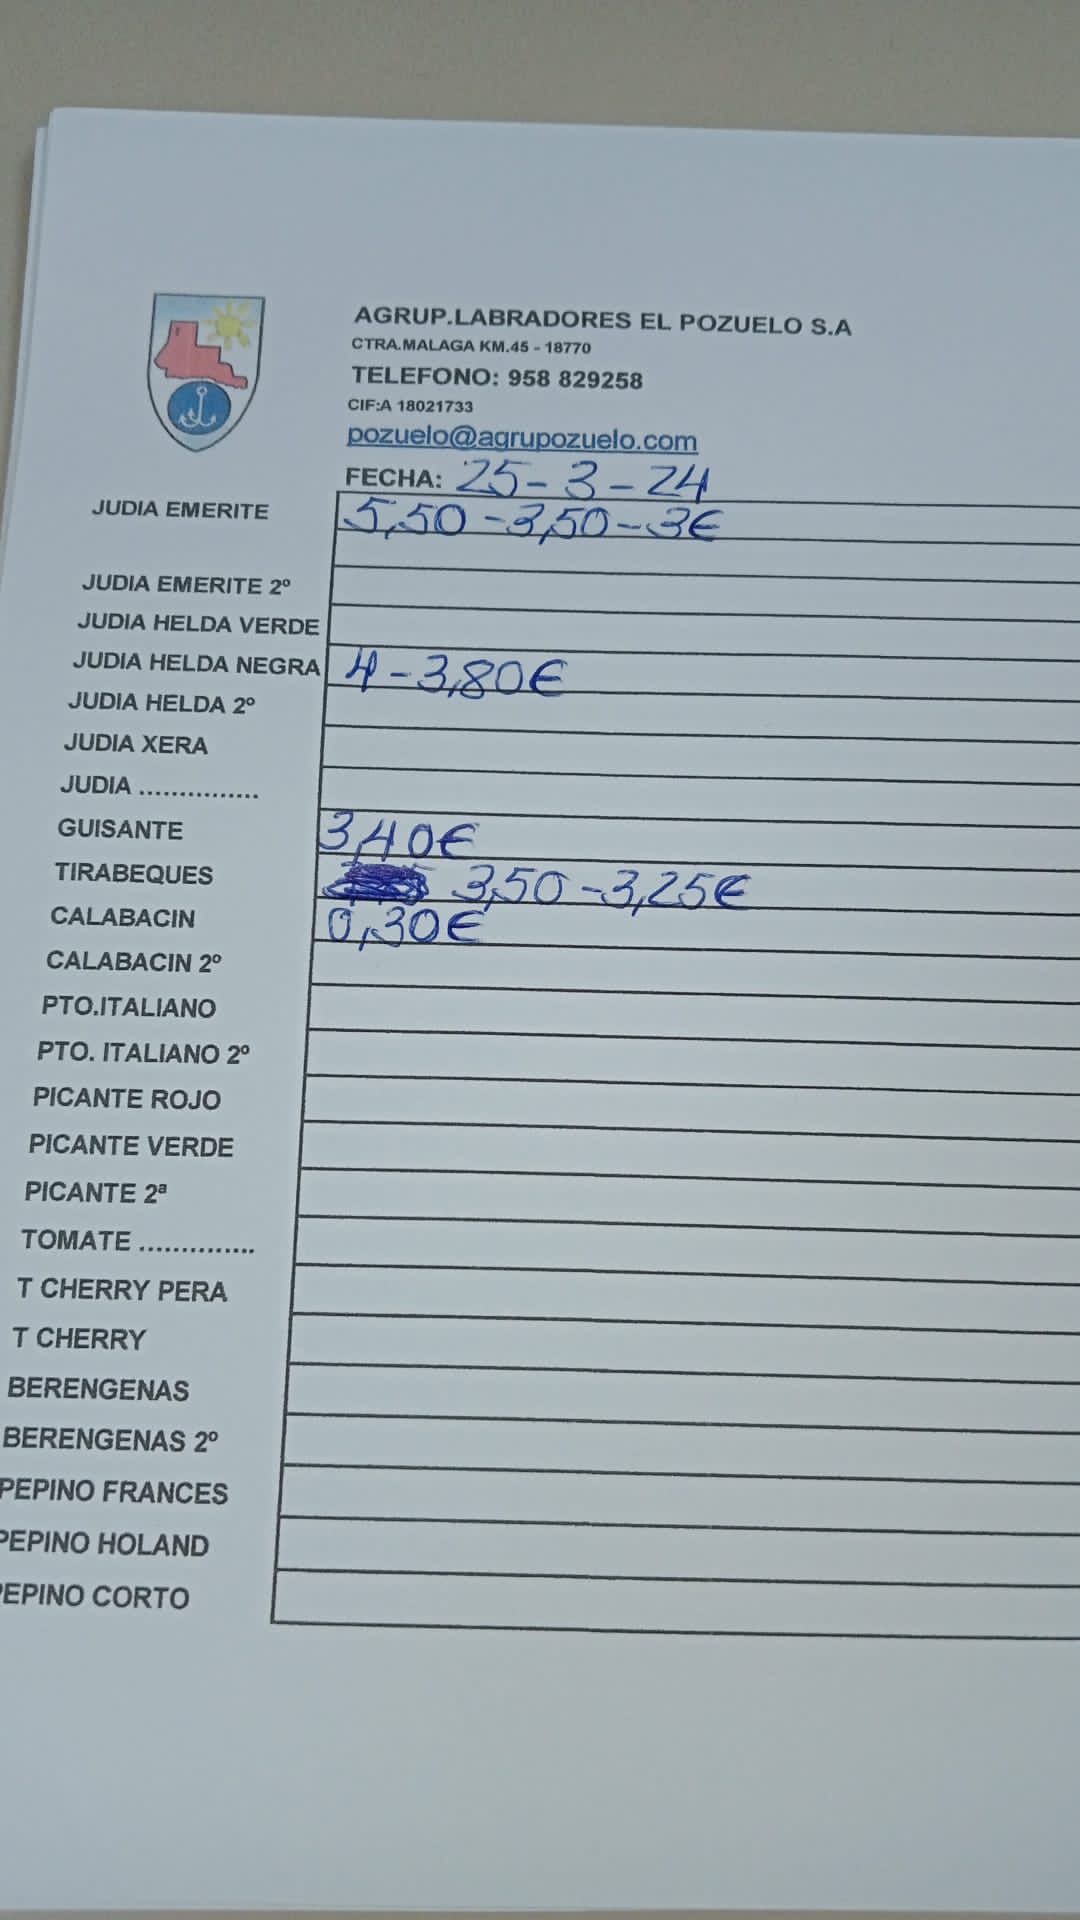 AGRUP.LABRADORES EL POZUELO S.A
CTRA.MALAGA KM.45 - 18770
TELEFONO: 958 829258
CIF:A 18021733
pozuelo@agrupozuelo.com
FECHA: 25-3-24
JUDIA EMERITE 5,50-3,50-3€
JUDIA EMERITE 2º
JUDIA HELDA VERDE
JUDIA HELDA NEGRA 4-3,80€
JUDIA HELDA 2º
JUDIA XERA
JUDIA ...............
GUISANTE 3,40€
TIRABEQUES 3,50-3,25€
CALABACIN 0,30€
CALABACIN 2º
PTO.ITALIANO
PTO. ITALIANO 2º
PICANTE ROJO
PICANTE VERDE
PICANTE 2ª
TOMATE ..............
T CHERRY PERA
T CHERRY
BERENGENAS
BERENGENAS 2º
PEPINO FRANCES
PEPINO HOLAND
PEPINO CORTO